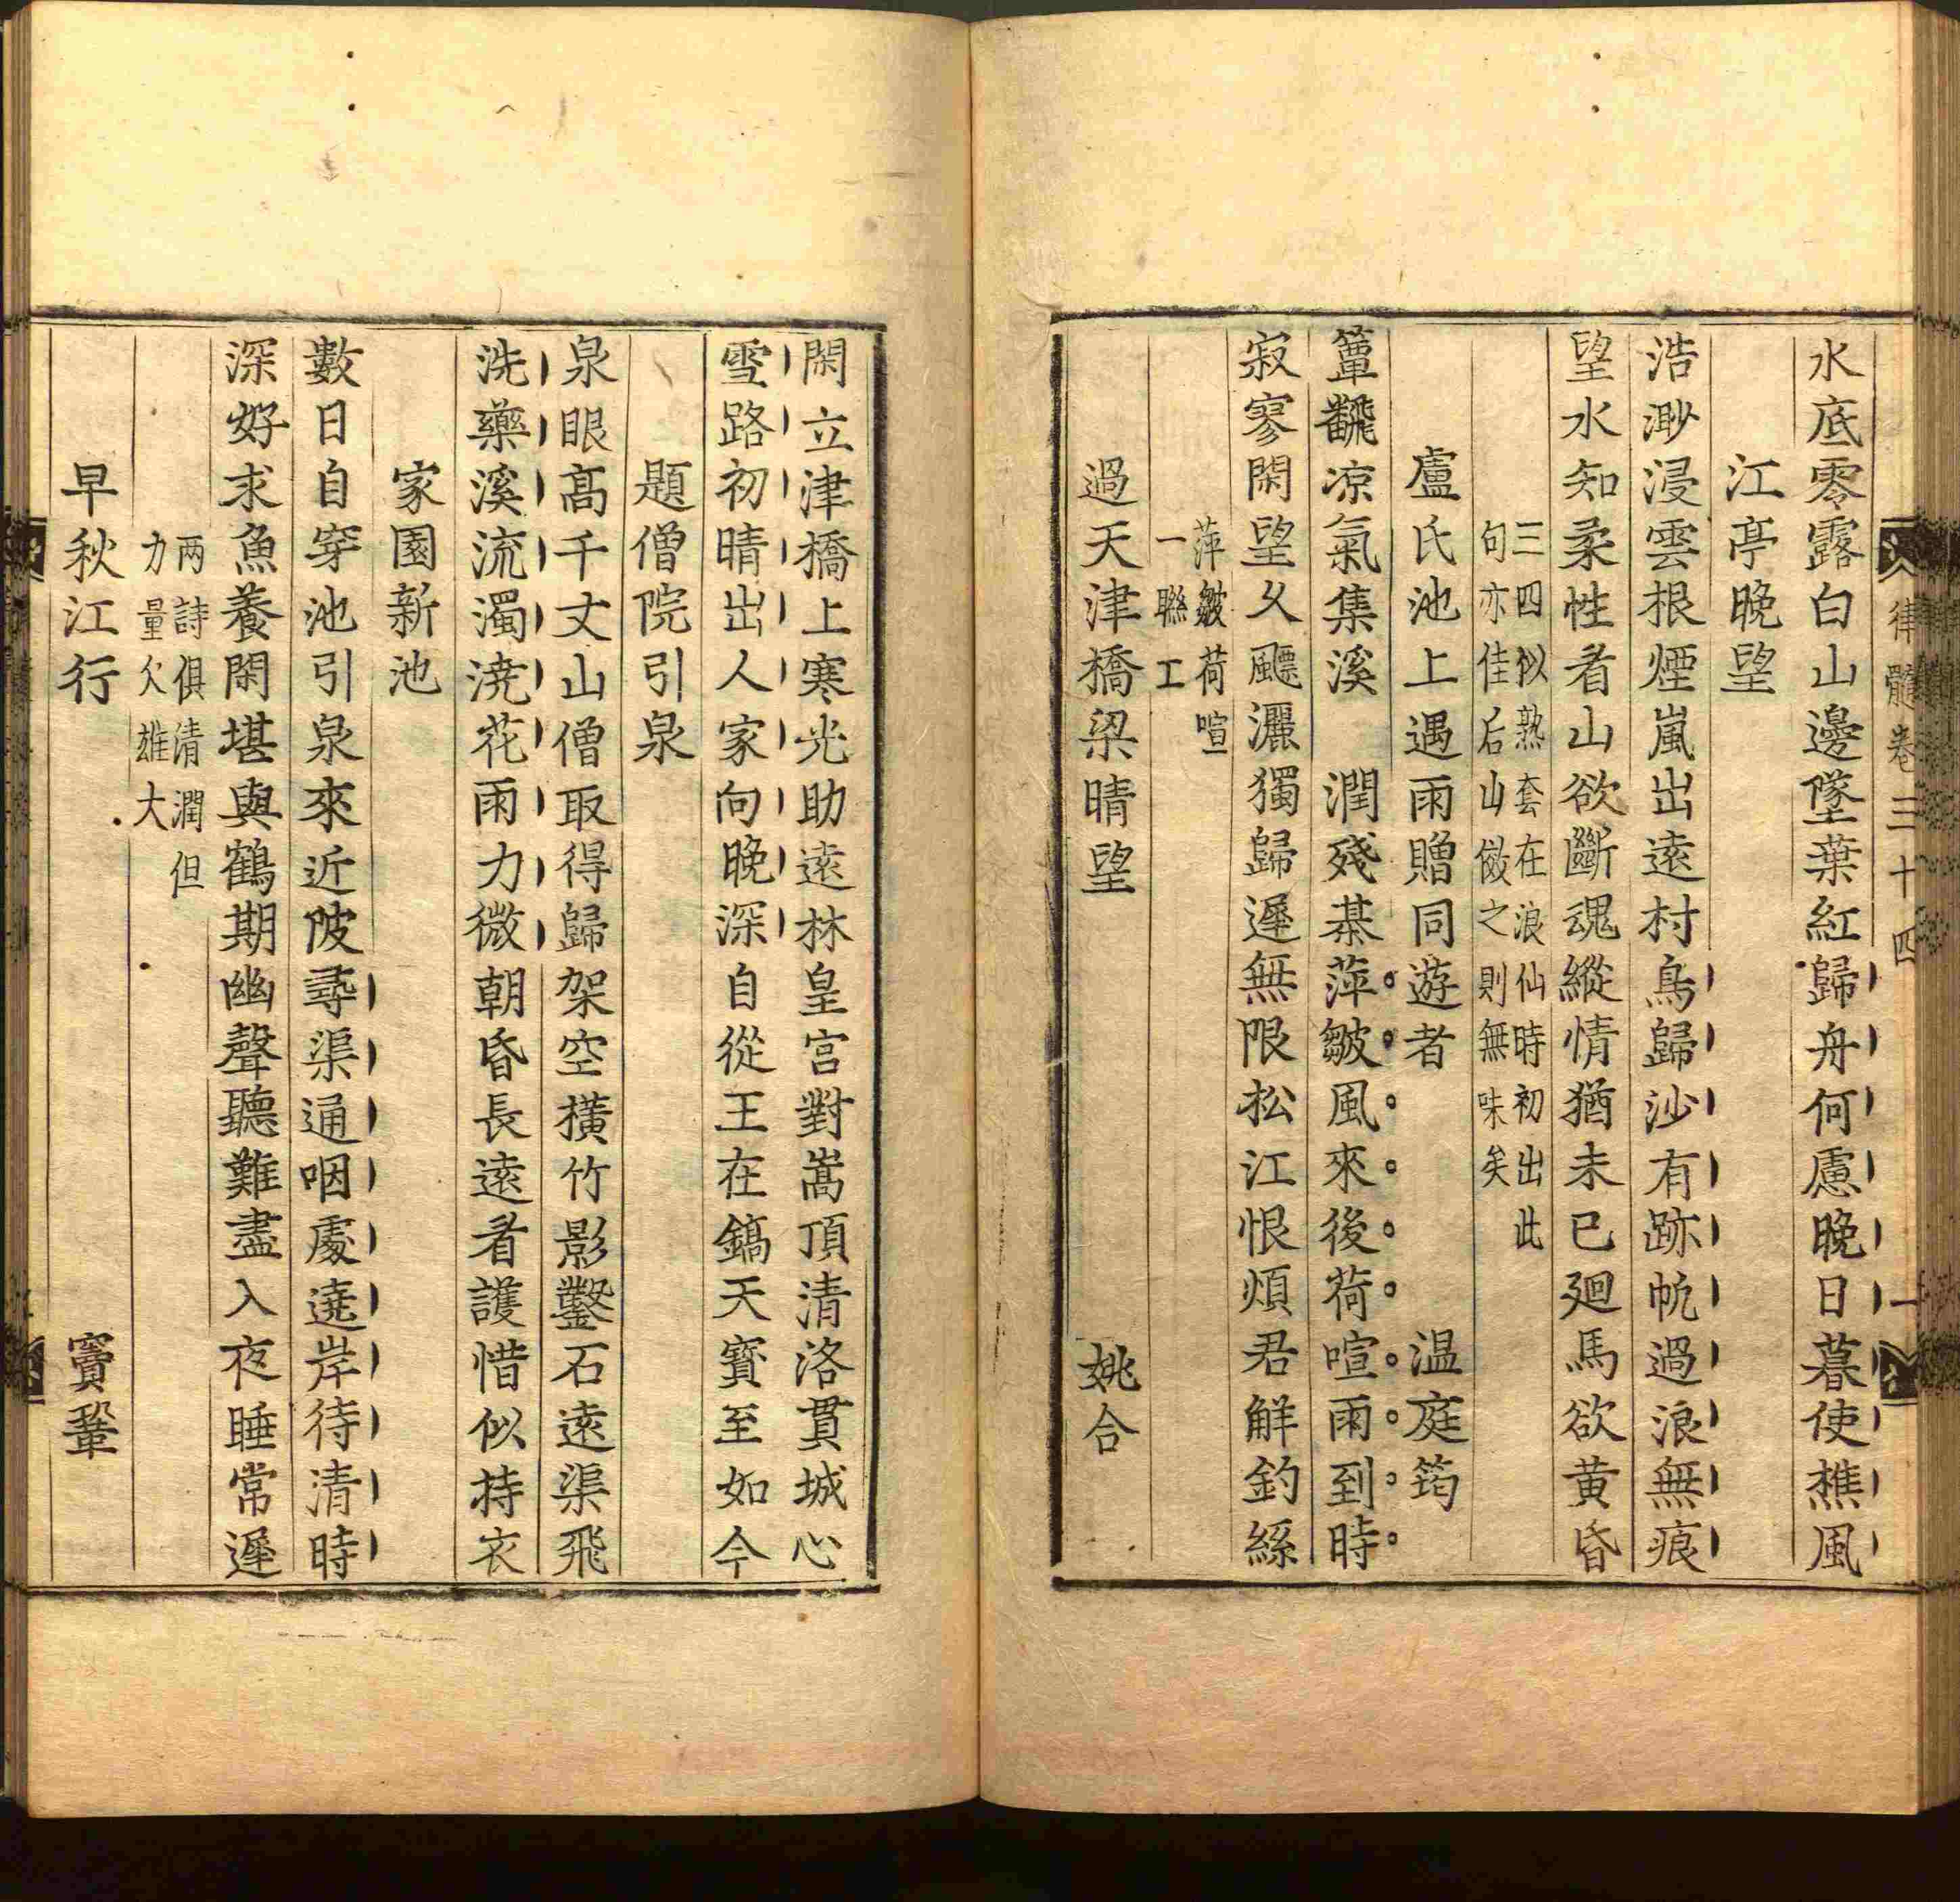 律髓卷三十四
一
水底零露白山邊墜葉紅歸舟何慮晚日暮使樵風
江亭晚望
浩渺浸雲根煙嵐出遠村鳥歸沙有跡帆過浪無痕
望水知柔性看山欲斷魂縱情猶未已廻馬欲黄昏
三四似熟套在浪仙時初出此
句亦佳后山倣之則無味矣
盧氏池上遇雨贈同遊者 温庭筠
簟飜凉氣集溪 潤殘棊萍皺風來後荷喧雨到時
寂寥閑望久飄灑獨歸遲無限松江恨煩君解釣絲
萍皺荷喧
一聮工
過天津橋梁晴望 姚合
閑立津橋上寒光助遠林皇宫對嵩頂清洛貫城心
雪路初晴出人家向晚深自從王在鎬天寳至如今
題僧院引泉
泉眼髙千丈山僧取得歸架空横竹影鑿石遠渠飛
洗藥溪流濁澆花雨力微朝昏長遠看護惜似持衣
家園新池
數日自穿池引泉來近陂尋渠通咽處遶岸待清時
深好求魚養閑堪與鶴期幽聲聽難盡入夜睡常遲
两詩俱清潤但
力量欠雄大
早秋江行 竇鞏